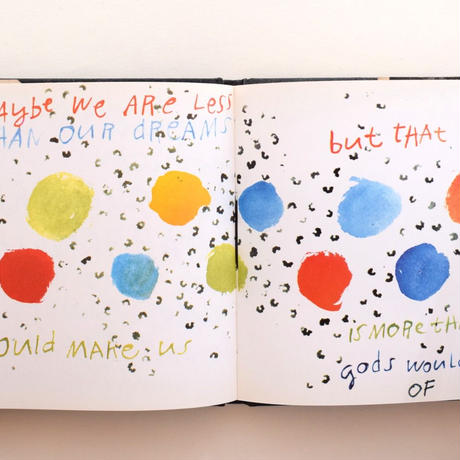 AYBE WE ARE LESS
HAN OUR dREAMS
OULD MAKE US
but tHAT
IS MORE tHA
gods WOUL
OF